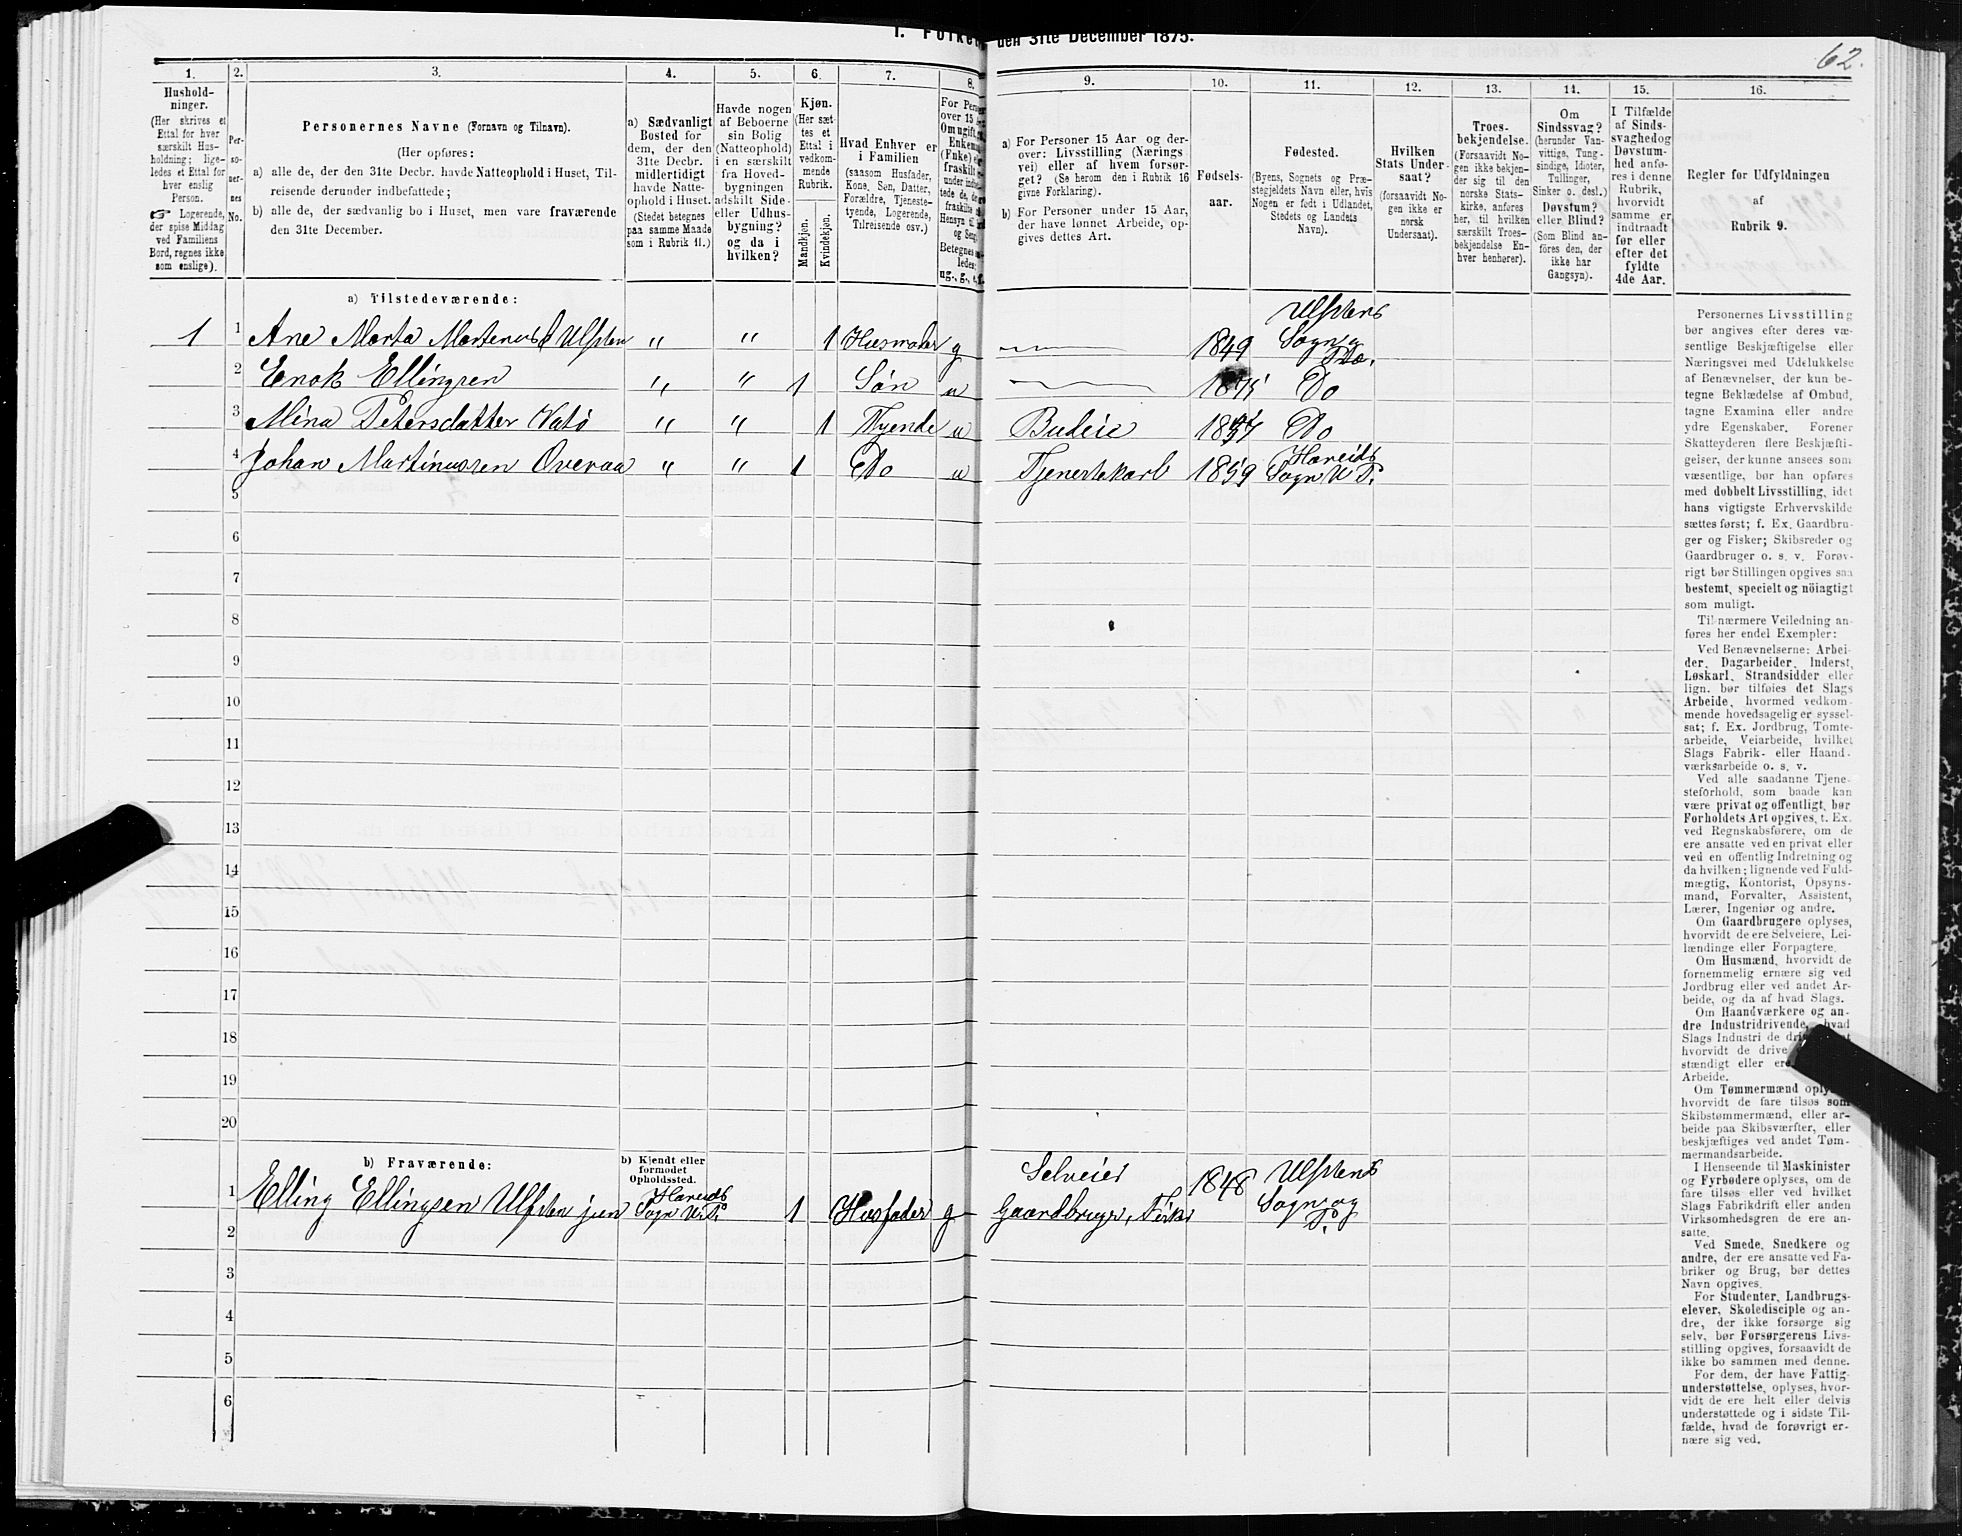 1. Folket
den 31te December 1875.
62.
1.
2.
3.
4.
5.
6.
7.
8.
9.
10.
11.
12.
13.
14.
15.
16.
Hushold-
ninger.
(Her skrives et
Ettal for hver
særskilt Hus-
holdning; lige-
ledes et Ettal for
hver enslig
Person.
☞ Logerende,
der spise Middag
ved Familiens
Bord, regnes ikke
som enslige).
Per-
so-
ner-
nes
No.
Personernes Navne (Fornavn og Tilnavn).
(Her opføres:
a) alle de, der den 31te Decbr. havde Natteophold i Huset, Til-
reisende derunder indbefattede;
b) alle de, der sædvanlig bo i Huset, men vare fraværende
den 31te December.
a) Sædvanligt
Bosted for
dem, der den
31te Decbr.
midlertidigt
havde Natte-
ophold i Huset.
(Stedet betegnes
paa samme Maade
som i Rubrik 11.)
Havde nogen
af Beboerne
sin Bolig
(Natteophold)
i en særskilt
fra Hoved-
bygningen
adskilt Side-
eller Udhus-
bygning?
og da i
hvilken?
Kjøn.
(Her sæt-
tes et
Ettal i
vedkom-
mende
Rubrik.
Mandkjøn.
Kvindekjøn.
Hvad Enhver er
i Familien
(saasom Husfader,
Kone, Søn, Datter,
Forældre, Tjeneste-
tyende, Logerende,
Tilreisende osv.)
For Pers
over 15
Om ugift,
Enkem
(Enke)
fraskilt
under indbe-
tede de, de
fraskilte
Hensyn til
og Seng.
Betegnes
ledes:
ug., g., e., f.
a) For Personer 15 Aar og der-
over: Livsstilling (Nærings-
vei) eller af hvem forsør-
get? (Se herom den i Rubrik 16
givne Forklaring).
b) For Personer under 15 Aar,
der have lønnet Arbeide, op-
gives dettes Art.
Fødsels-
aar.
Fødested.
(Byens, Sognets og Præ-
stegjeldets Navn eller, hvis
Nogen er født i Udlandet,
Stedets og Landets
Navn).
Hvilken
Stats Under-
saat?
(forsaavidt No-
gen ikke er
norsk
Undersaat).
Troes-
bekjendelse.
(Forsaavidt No-
gen ikke bekjen-
der sig til den
norske Stats-
kirke, anføres
her, til hvilken
særskilt Troes-
bekjendelse En-
hver henhører).
Om
Sindssvag?
(herunder Van-
vittige, Tung-
sindige, Idioter,
Tullinger,
Sinker o. desl.)
Døvstum?
eller Blind?
(Som Blind an-
føres den, der
ikke har
Gangsyn).
I Tilfælde
af Sinds-
svaghedog
Døvstum-
hed anfø-
res i denne
Rubrik,
hvorvidt
samme er
indtraadt
før eller
efter det
fyldte
4de Aar.
Regler for Udfyldningen
af
Rubrik 9.
a) Tilstedeværende:
1 1 Ane Marta Martenusd Ulsten " " 1 Husmoder g 1849 Ulstens Sogn og Do.
2 Enok Ellingsen " " 1 Søn u 1875 Do
3 Mina Petersdatter Vatö " " 1 Tyende u Budeie 1857 Do
4 Johan Martinussen Overaa " " 1 Do u Tjenestekarl 1859 Hareids Sogn U P.
5
6
7
8
9
10
11
12
13
14
15
16
17
18
19
20
b) Fraværende:
b) Kjendt eller
formodet
Opholdssted.
1 Elling Ellingsen Ulsten jun Hareids Sogn U. P. 1 Husfader g Selveier Gaardbruger, Fisker 1848 Ulstens Sogn og P.
2
3
4
5
6
Personernes Livsstilling
bør angives efter deres væ-
sentlige Beskjæftigelse eller
Næringsvei med Udelukkelse
af Benævnelser, der kun be-
tegne Beklædelse af Ombud,
tagne Examina eller andre
ydre Egenskaber. Forener
Skatteyderen flere Beskjæfti-
gelser, der kunne ansees som
væsentlige, bør han opføres
med dobbelt Livsstilling, idet
hans vigtigste Erhvervskilde
sættes først; f. Ex. Gaardbru-
ger og Fisker; Skibsreder og
Gaardbruger o. s. v. Forøv-
rigt bør Stillingen opgives saa
bestemt, specielt og nöiagtigt
som muligt.
Til nærmere Veiledning an-
føres her endel Exempler:
Ved Benævnelserne: Arbei-
der, Dagarbeider, Inderst,
Løskarl, Strandsidder eller
lign. bør tilføies det Slags
Arbeide, hvormed vedkom-
mende hovedsagelig er syssel-
sat; f. Ex. Jordbrug, Tomte-
arbeide, Veiarbeide, hvilket
Slags Fabrik- eller Haand-
værksarbeide o. s. v.
Ved alle saadanne Tjene-
steforhold, som baade kan
være privat og offentligt, bør
Forholdets Art opgives, t. Ex.
ved Regnskabsførere, om de
ere ansatte ved en privat eller
ved en offentlig Indretning og
da hvilken; lignende ved Fuld-
mægtig, Kontorist, Opsyns-
mand, Forvalter, Assistent,
Lærer, Ingeniør og andre.
Om Gaardbrugere oplyses,
hvorvidt de ere Selveiere, Lei-
lændinge eller Forpagtere.
Om Husmænd, hvorvidt de
fornemmelig ernære sig ved
Jordbrug eller ved andet Ar-
beide, og da af hvad Slags.
Om Haandværkere og an-
dre Industridrivende, hvad
Slags Industri de
hvorvidt de drive
stændigt eller ere
Arbeide.
Om Tømmermænd oplyses
hvorvidt de fare tilsøs som
Skibstømmermænd, eller ar-
beide paa Skibsværfter, eller
beskjæftiges ved andet Tøm-
mermandsarbeide.
I Henseende til Maskinister
og Fyrbødere oplyses, om de
fare tilsøs eller ved hvilket
Slags Fabrikdrift eller anden
Virksomhedsgren de ere an-
satte.
Ved Smede, Snedkere og
andre, der ere ansatte ved Fa-
briker og Brug, bør dettes
Navn opgives.
For Studenter, Landbrugs-
elever, Skoledisciple og an-
dre, der ikke forsørge sig
selv, bør Forsørgerens Livs-
stilling opgives, forsaavidt de
ikke bo sammen med denne.
For dem, der have Fattig-
understøttelse, oplyses, hvor-
vidt de ere helt eller delvis
understøttede og i sidste Til-
fælde, hvad de forøvrigt er-
nære sig ved.